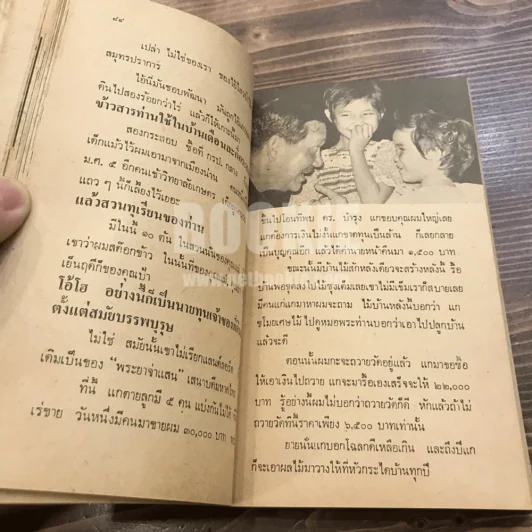 ๘๙
เปล่า ไม่ใช่ของเรา ของ
สมุทรปราการ
ไอ้นี่มันชอบพัฒนา
คืนไปสองร้อยกว่าไร่ แล้วก็ให้เกาะนี้มา
ข้าวสารท่านใช้ในบ้านเดือนละ
สองกระสอบ ซื้อที่ กรป. กลาง
เด็กแม้วไว้ผมเอามาจากเมืองน่าน
ม.ศ. ๕ อีกคนเข้าวิทยาลัยเกษตร
แถว ๆ นี้ก็เลี้ยงไว้เยอะ
แล้วสวนทุเรียนของท่าน
มีในนี้ ๓๐ ต้น
เขาว่าผมสต๊อกข้าว ในนั้นที่ของ
เย็นฤดีก็ของคุณป้า
โอ้โฮ อย่างนี้ก็เป็นนายทุนเจ้าของ
ตั้งแต่สมัยบรรพบุรุษ
ไม่ใช่ สมัยนั้นเขาไม่เรียกแลนด์ลอร์ด
เดิมเป็นของ “พระยาจ่าแสน” เสนาบดีมหาดไทย
ที่นี้ แกตายลูกมี ๕ คน แบ่งกันไม่ได้
เร่ขาย วันหนึ่งมีคนมาขายผม ๓๐,๐๐๐ บาท
ฉันไปโอนที่พบ ดร. บำรุง แกขอบคุณผมใหญ่เลย
แกต้องการเงินไม่งั้นแกขาดทุนเป็นล้าน ก็เลยกลาย
เป็นบุญคุณอีก แล้วได้ค่านายหน้าคืนมา ๑,๕๐๐ บาท
ขณะนั้นมีบ้านไม้สักหลังเดียวจะสร้างหลังนี้ รื้อ
บ้านพอขุดลงไปไม้ซุงเต็มเลยเขาไม่มีเข็มเราก็สบายเลย
มีคนแก่แกมาหาผมจะถาม ไม้บ้านหลังนี้บอกว่า แก
ขโมยเศษไม้ ไปดูหมอพระท่านบอกว่าเอาไปไปลูกบ้าน
แล้วจะดี
ตอนนั้นผมกะจะถวายวัดอยู่แล้ว แกมาขอซื้อ
ให้เอาเงินไปถวาย แกจะมารื้อเองเสร็จจะให้ ๒๒,๐๐๐
บาท รู้อย่างนี้ผมไม่บอกว่าถวายวัดก็ดี หักแล้วถ้าไม่
ถวายวัดที่นี้ราคาเพียง ๖,๕๐๐ บาทเท่านั้น
ยายนั่นแกบอกโฉลกดีเหลือเกิน และถึงปีแก
ก็จะเอาผลไม้มาวางให้ที่หัวกระไดบ้านทุกปี